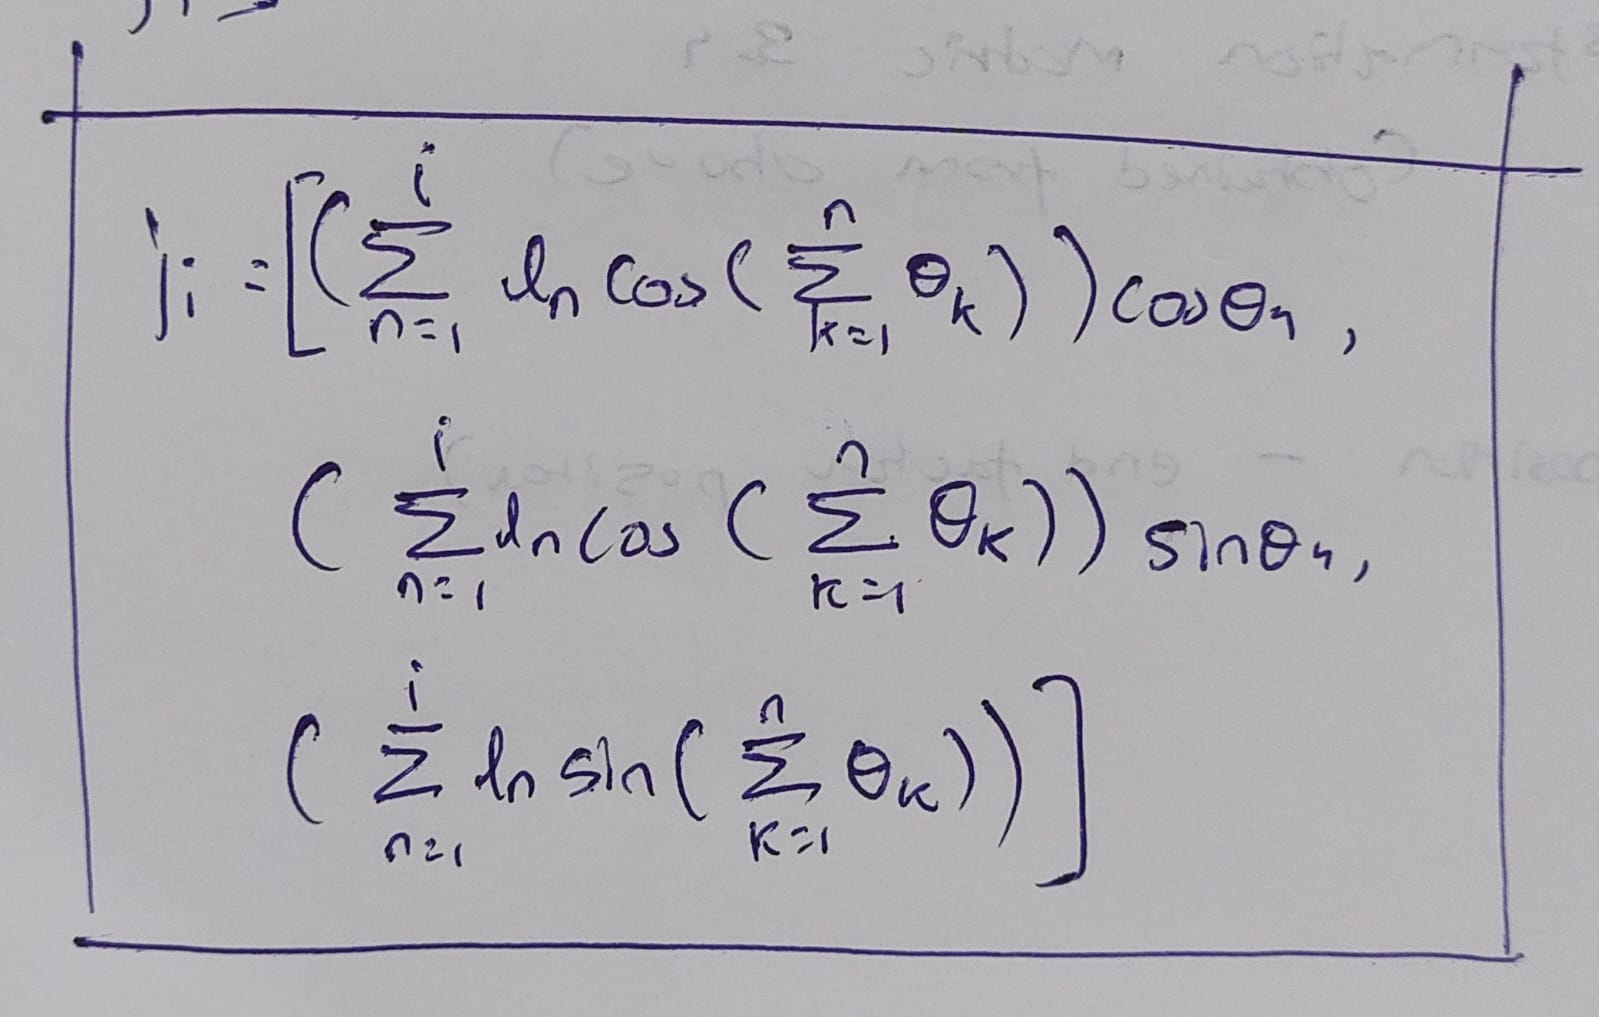 j_i = [ ( \sum_{n=1}^{i} l_n cos ( \sum_{k=1}^{n} θ_k ) ) cosθ_n ,
( \sum_{n=1}^{i} l_n cos ( \sum_{k=1}^{n} θ_k ) ) sinθ_n ,
( \sum_{n=1}^{i} l_n sin ( \sum_{k=1}^{n} θ_k ) ) ]